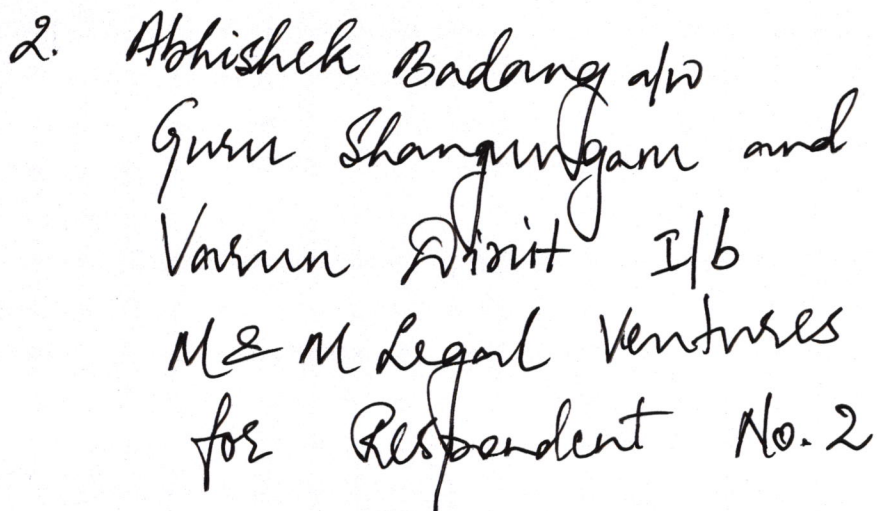 2. Abhishek Badang a/w
Guru Shanmungam and
Varun Dixit I/b
M & M Legal Ventures
for Respondent No. 2